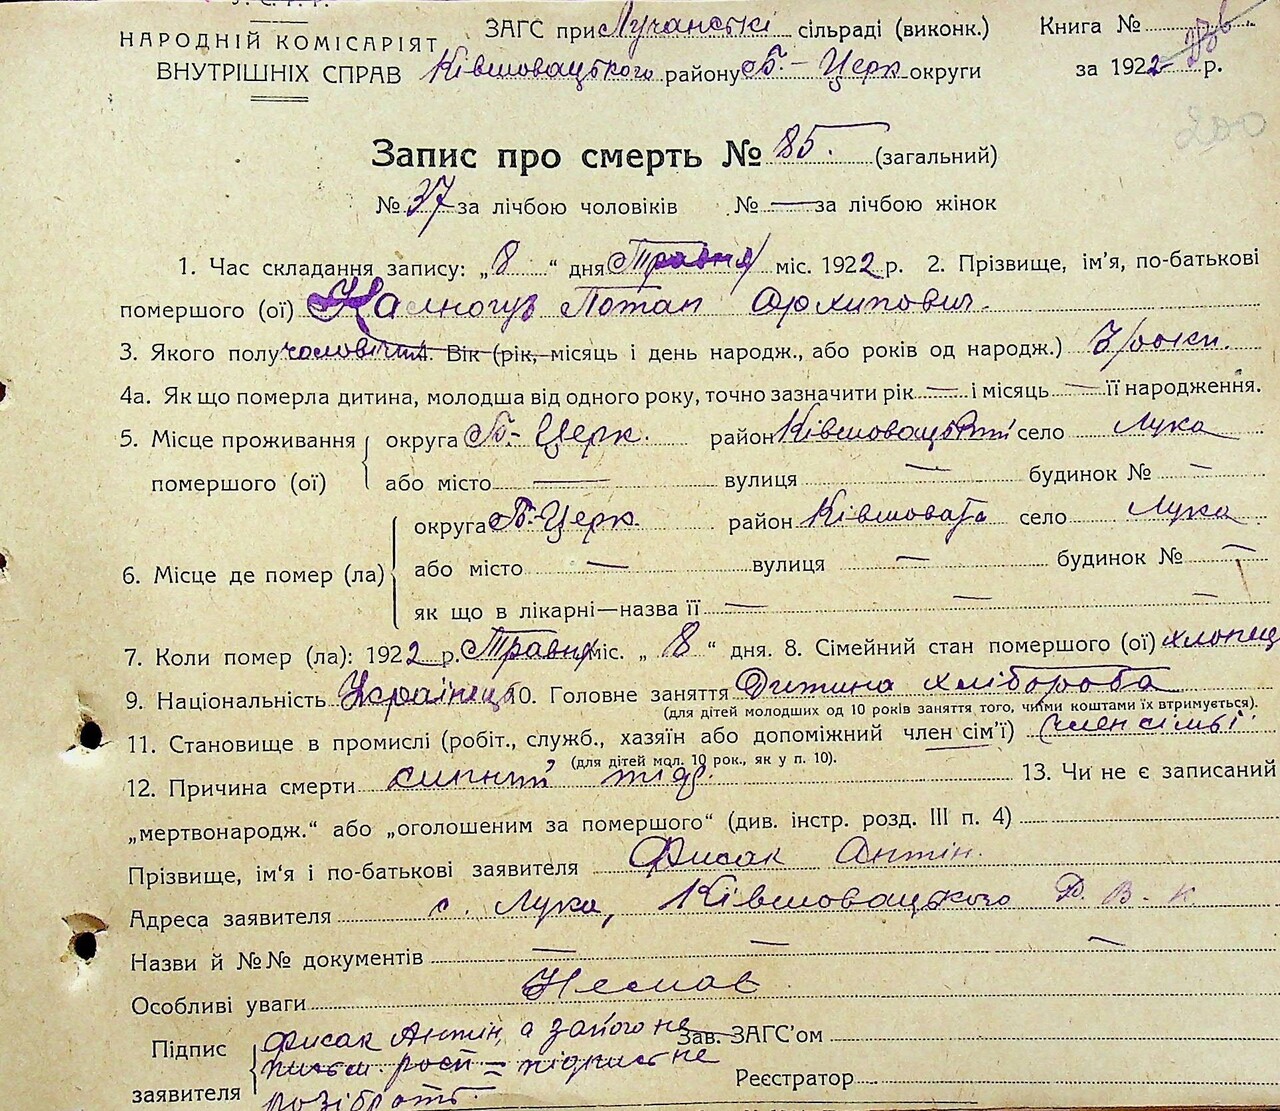 У.С.Р.Р.
НАРОДНІЙ КОМІСАРІЯТ
ВНУТРІШНІХ СПРАВ
ЗАГС при Лучанські сільраді (виконк.)
Ківшовацького району Б.-Церк округи
Книга №
за 1922 р.
200
Запис про смерть № 85. (загальний)
№ 37 за лічбою чоловіків № — за лічбою жінок
1. Час складання запису: „8“ дня Травня міс. 1922 р. 2. Прізвище, ім'я, по-батькові
помершого (ої) Калногуз Потап Архипович.
3. Якого полу чоловічий. Вік (рік, місяць і день народж., або років од народж.) 3 роки.
4а. Як що померла дитина, молодша від одного року, точно зазначити рік — і місяць — її народження.
5. Місце проживання округа Б.-Церк. район Ківшовацький село Лука
помершого (ої) або місто — вулиця — будинок № —
округа Б.-Церк. район Ківшовата село Лука
6. Місце де помер (ла) або місто — вулиця — будинок № —
як що в лікарні—назва її — — —
7. Коли помер (ла): 1922 р. Травня міс. „8“ дня. 8. Сімейний стан помершого (ої) хлопець
9. Національність Українець 10. Головне заняття Дитина хлібороба
(для дітей молодших од 10 років заняття того, чиїми коштами їх втримується).
11. Становище в промислі (робіт., служб., хазяїн або допоміжний член сім'ї) член сімьі
(для дітей мол. 10 рок., як у п. 10).
12. Причина смерти сипний тіф. 13. Чи не є записаний
„мертвонародж.“ або „оголошеним за помершого“ (див. інстр. розд. III п. 4)
Прізвище, ім'я і по-батькові заявителя Фисак Антін.
Адреса заявителя с. Лука, Ківшовацького Р. В. К.
Назви й №№ документів — — —
Особливі уваги Немав
Підпис заявителя Фисак Антін, а за його не
письм. росп = підпись не
розібрать.
Зав. ЗАГС'ом
Реєстратор